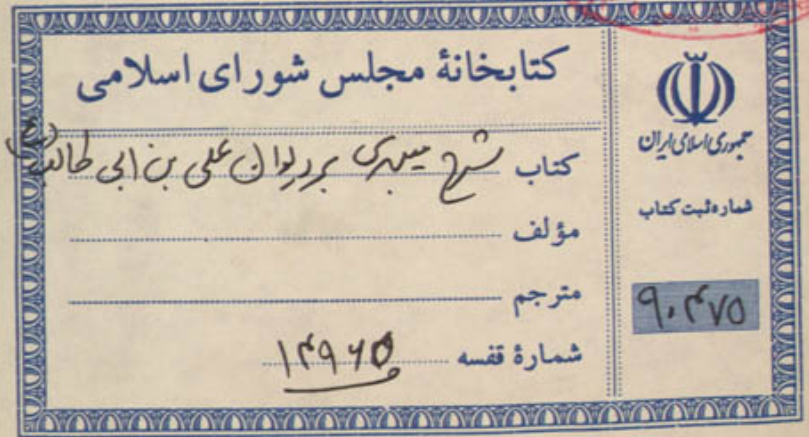 کتابخانهٔ مجلس شورای اسلامی
کتاب شرح میبدی بر دیوان علی بن ابی طالب (ع)
مؤلف
مترجم
شمارهٔ قفسه ۱۴۹۶۵
جمهوری اسلامی ایران
شماره ثبت کتاب
۹۰۴۷۵